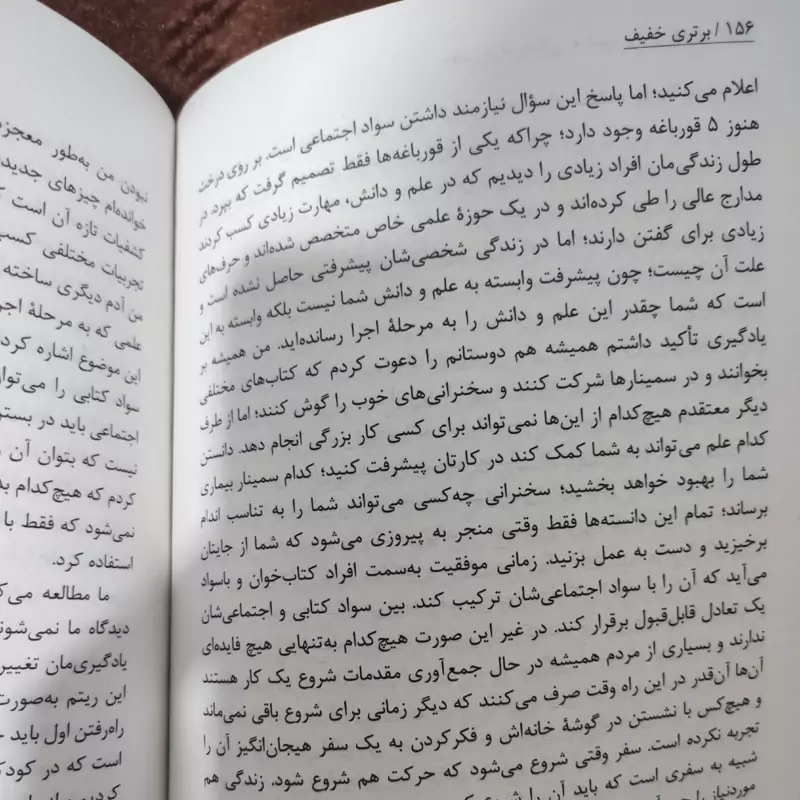 ۱۵۶ / برتری خفیف
اعلام می‌کنید؛ اما پاسخ این سؤال نیازمند داشتن سواد اجتماعی است. بر روی درخت
هنوز ۵ قورباغه وجود دارد؛ چراکه یکی از قورباغه‌ها فقط تصمیم گرفت که بپرد. در
طول زندگی‌مان افراد زیادی را دیدیم که در علم و دانش، مهارت زیادی کسب کردند
مدارج عالی را طی کرده‌اند و در یک حوزهٔ علمی خاص متخصص شده‌اند و حرف‌های
زیادی برای گفتن دارند؛ اما در زندگی شخصی‌شان پیشرفتی حاصل نشده است و
علت آن چیست؛ چون پیشرفت وابسته به علم و دانش شما نیست بلکه وابسته به این
است که شما چقدر این علم و دانش را به مرحلهٔ اجرا رسانده‌اید. من همیشه بر
یادگیری تأکید داشتم همیشه هم دوستانم را دعوت کردم که کتاب‌های مختلفی
بخوانند و در سمینارها شرکت کنند و سخنرانی‌های خوب را گوش کنند؛ اما از طرف
دیگر معتقدم هیچ‌کدام از این‌ها نمی‌تواند برای کسی کار بزرگی انجام دهد. دانستن
کدام علم می‌تواند به شما کمک کند در کارتان پیشرفت کنید؛ کدام سمینار بیماری
شما را بهبود خواهد بخشید؛ سخنرانی چه‌کسی می‌تواند شما را به تناسب اندام
برساند؛ تمام این دانسته‌ها فقط وقتی منجر به پیروزی می‌شود که شما از جایتان
برخیزید و دست به عمل بزنید. زمانی موفقیت به‌سمت افراد کتاب‌خوان و باسواد
می‌آید که آن را با سواد اجتماعی‌شان ترکیب کند. بین سواد کتابی و اجتماعی‌شان
یک تعادل قابل‌قبول برقرار کند. در غیر این صورت هیچ‌کدام به‌تنهایی هیچ فایده‌ای
ندارند و بسیاری از مردم همیشه در حال جمع‌آوری مقدمات شروع یک کار هستند
آن‌ها آن‌قدر در این راه وقت صرف می‌کنند که دیگر زمانی برای شروع باقی نمی‌ماند
و هیچ‌کس با نشستن در گوشهٔ خانه‌اش و فکرکردن به یک سفر هیجان‌انگیز آن را
تجربه نکرده است. سفر وقتی شروع می‌شود که حرکت هم شروع شود. زندگی هم
شبیه به سفری است که باید آن را شروع
نبودن من به‌طور
خوانده‌ام چیزهای جدید
کشفیات تازه آن است
تجربیات مختلفی
من آدم دیگری ساخته
علمی که به مرحلهٔ
این موضوع اشاره
سواد کتابی را
اجتماعی باید در
نیست که بتوان آن
کردم که هیچ‌کدام
نمی‌شود که فقط با
استفاده کرد.
ما مطالعه
دیدگاه ما
یادگیری‌مان تغییر
این ریتم به‌صورت
راه‌رفتن اول باید
است که در